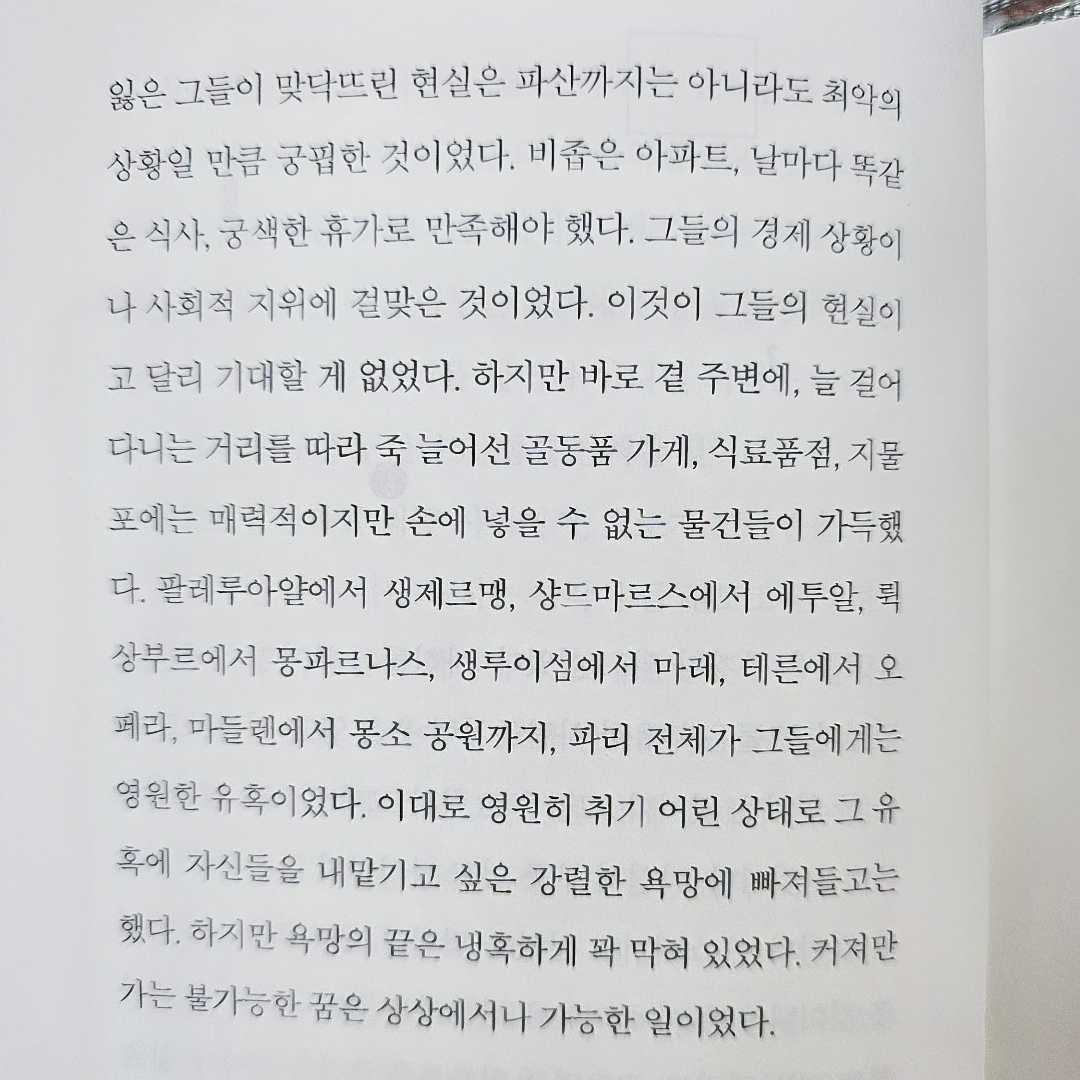 잃은 그들이 맞닥뜨린 현실은 파산까지는 아니라도 최악의
상황일 만큼 궁핍한 것이었다. 비좁은 아파트, 날마다 똑같
은 식사, 궁색한 휴가로 만족해야 했다. 그들의 경제 상황이
나 사회적 지위에 걸맞은 것이었다. 이것이 그들의 현실이
고 달리 기대할 게 없었다. 하지만 바로 곁 주변에, 늘 걸어
다니는 거리를 따라 죽 늘어선 골동품 가게, 식료품점, 지물
포에는 매력적이지만 손에 넣을 수 없는 물건들이 가득했
다. 팔레루아얄에서 생제르맹, 샹드마르스에서 에투알, 뤽
상부르에서 몽파르나스, 생루이섬에서 마레, 테른에서 오
페라, 마들렌에서 몽소 공원까지, 파리 전체가 그들에게는
영원한 유혹이었다. 이대로 영원히 취기 어린 상태로 그 유
혹에 자신들을 내맡기고 싶은 강렬한 욕망에 빠져들고는
했다. 하지만 욕망의 끝은 냉혹하게 꽉 막혀 있었다. 커져만
가는 불가능한 꿈은 상상에서나 가능한 일이었다.